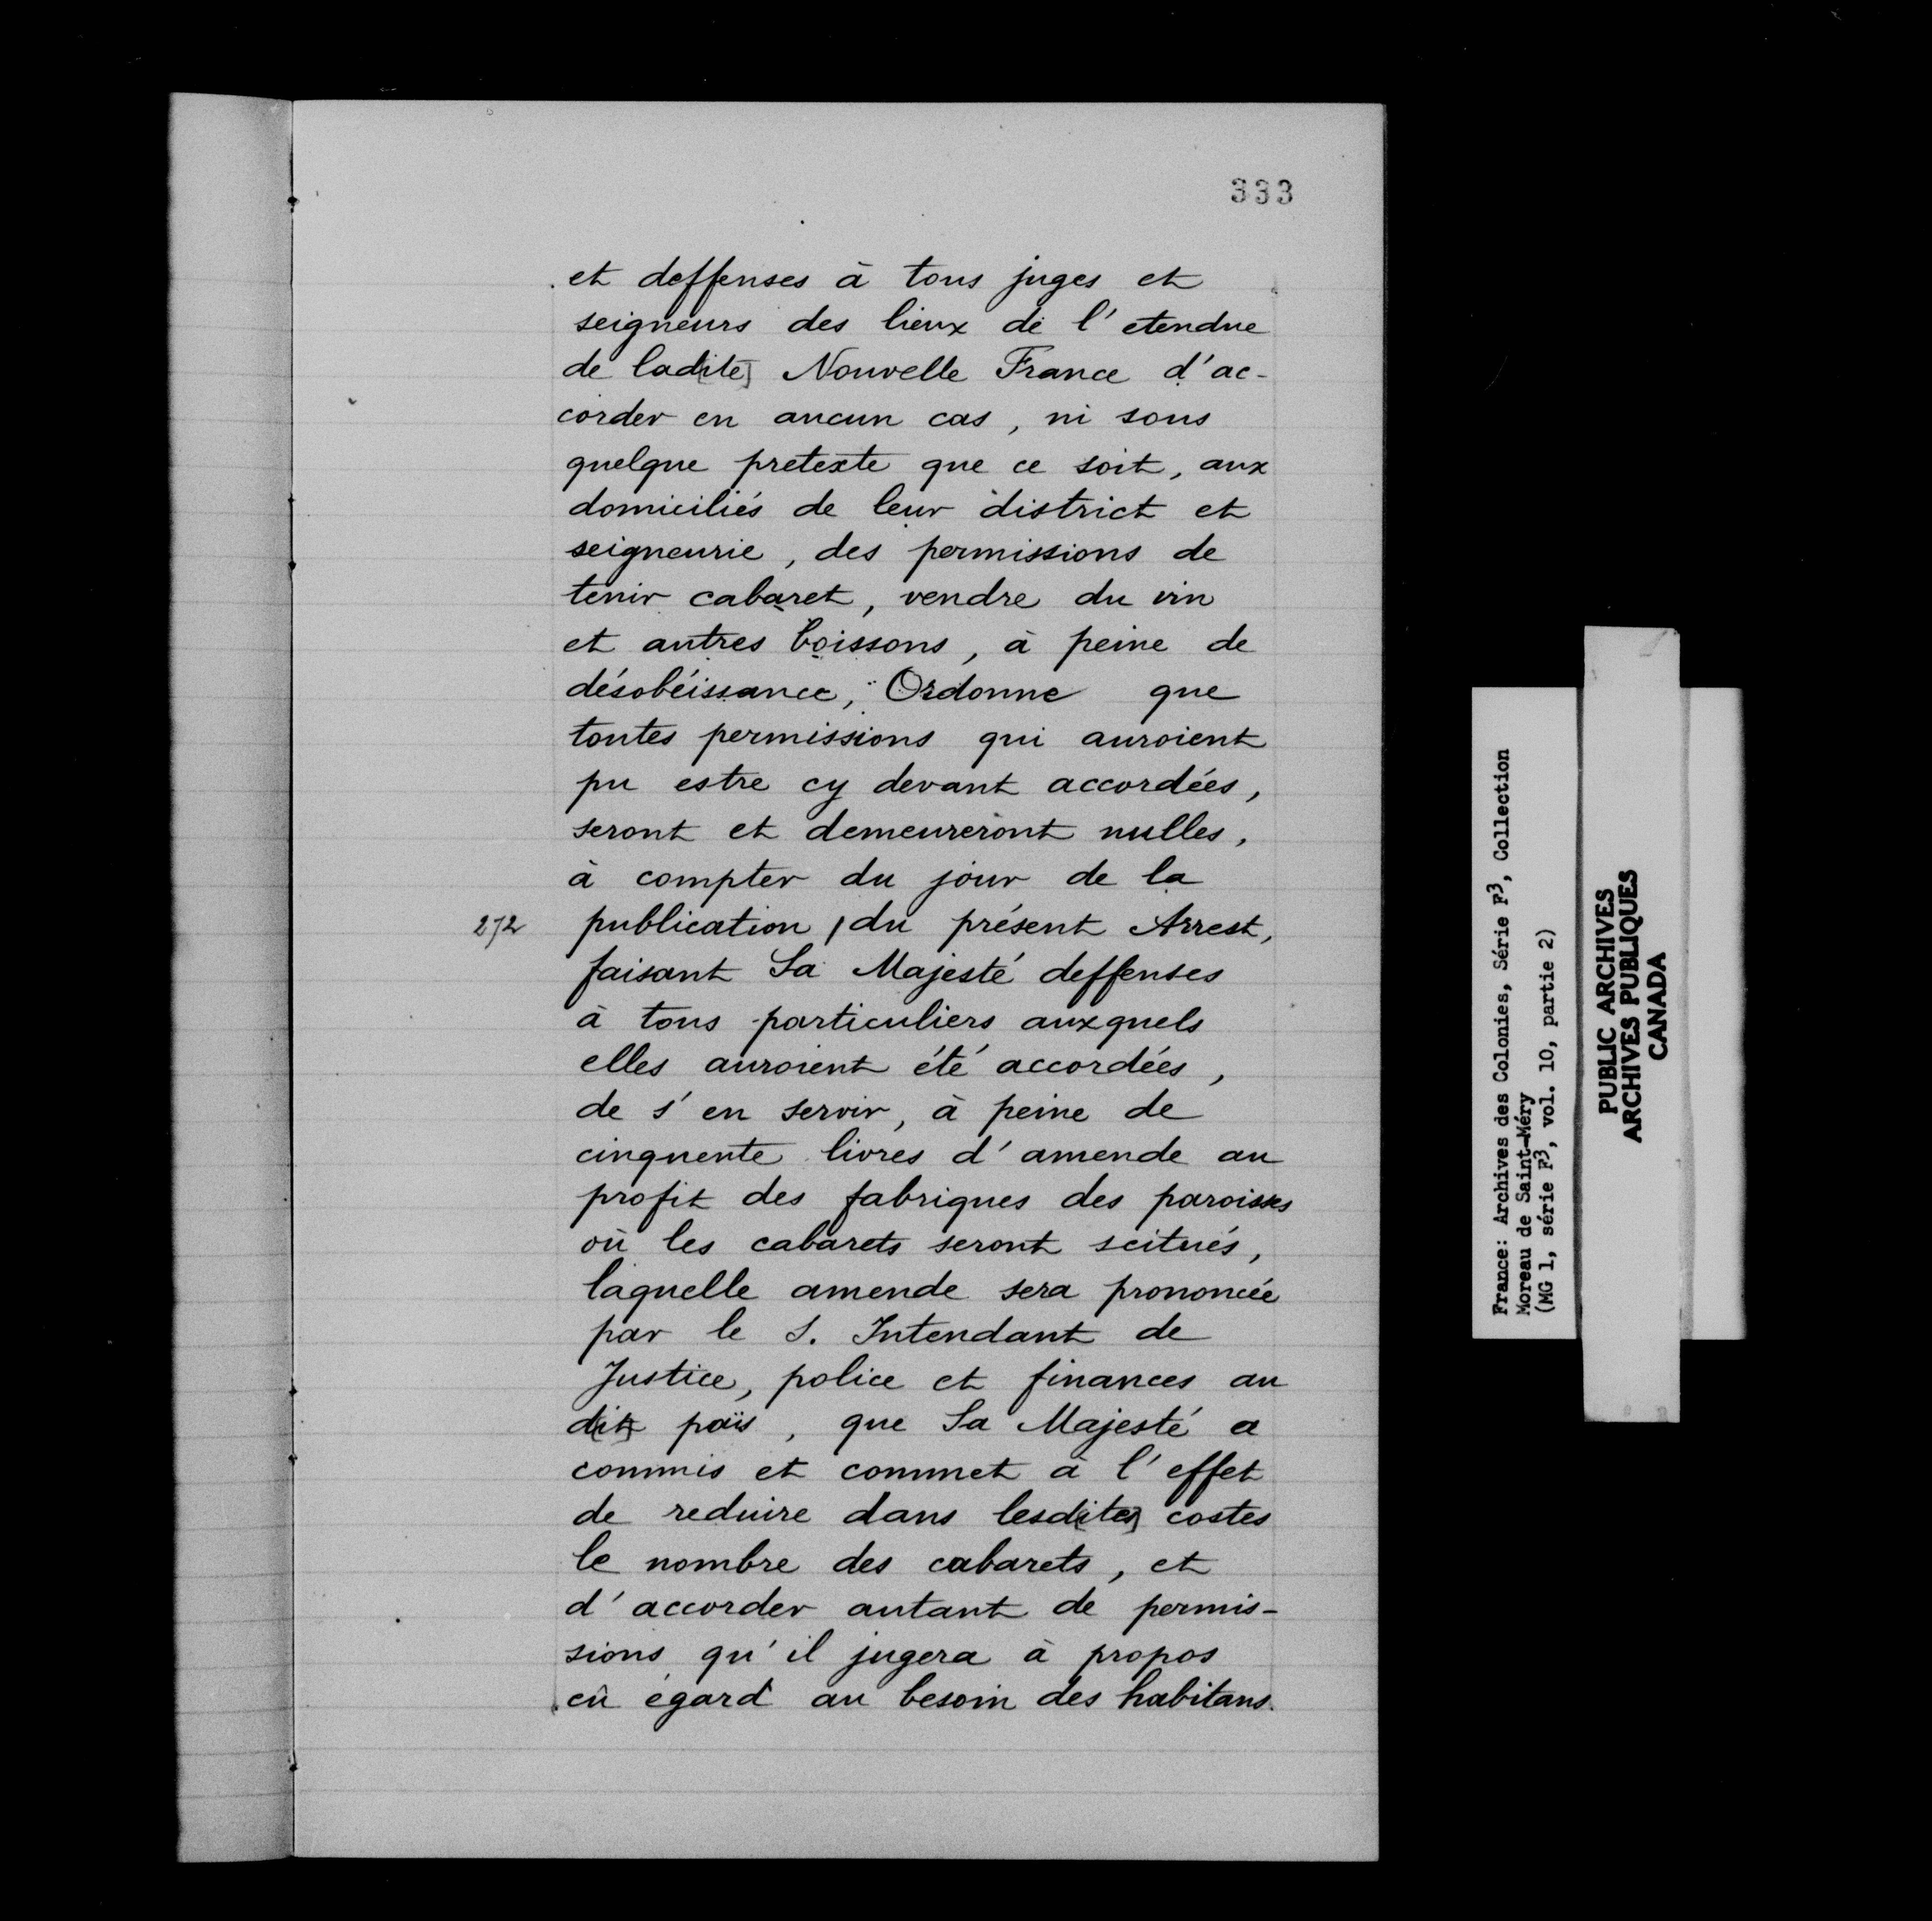 333
et deffenses à tous juges et
seigneurs des lieux de l'etendue
de lad[ite] Nouvelle France d'ac-
corder en aucun cas, ni sous
quelque pretexte que ce soit, aux
domiciliés de leur district et
seigneurie, des permissions de
tenir cabaret, vendre du vin
et autres boissons, à peine de
désobéissance, Ordonne que
toutes permissions qui auroient
pu estre cy devant accordées,
seront et demeureront nulles,
à compter du jour de la
272 publication / du présent Arrest,
faisant Sa Majesté deffenses
à tous particuliers auxquels
elles auroient été accordées,
de s'en servir, à peine de
cinquente livres d'amende au
profit des fabriques des paroisses
où les cabarets seront scitués,
laquelle amende sera prononcée
par le S. Intendant de
Justice, police et finances au
d[it] païs, que Sa Majesté a
commis et commet à l'effet
de reduire dans lesd[ites] costes
le nombre des cabarets, et
d'accorder autant de permis-
sions qu'il jugera à propos
eû égard au besoin des habitans.
France: Archives des Colonies, Série F3, Collection
Moreau de Saint-Méry
(MG 1, série F3, vol. 10, partie 2)
PUBLIC ARCHIVES
ARCHIVES PUBLIQUES
CANADA